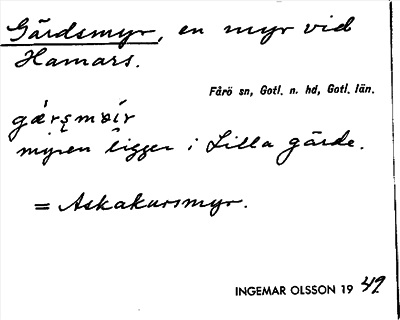 Gärdsmyr, en myr vid
Hamars.
Fårö sn, Gotl. n. hd, Gotl. län.
gǽrşmøír
myren ligger i Lilla gärde.
= Askakursmyr.
INGEMAR OLSSON 19 49